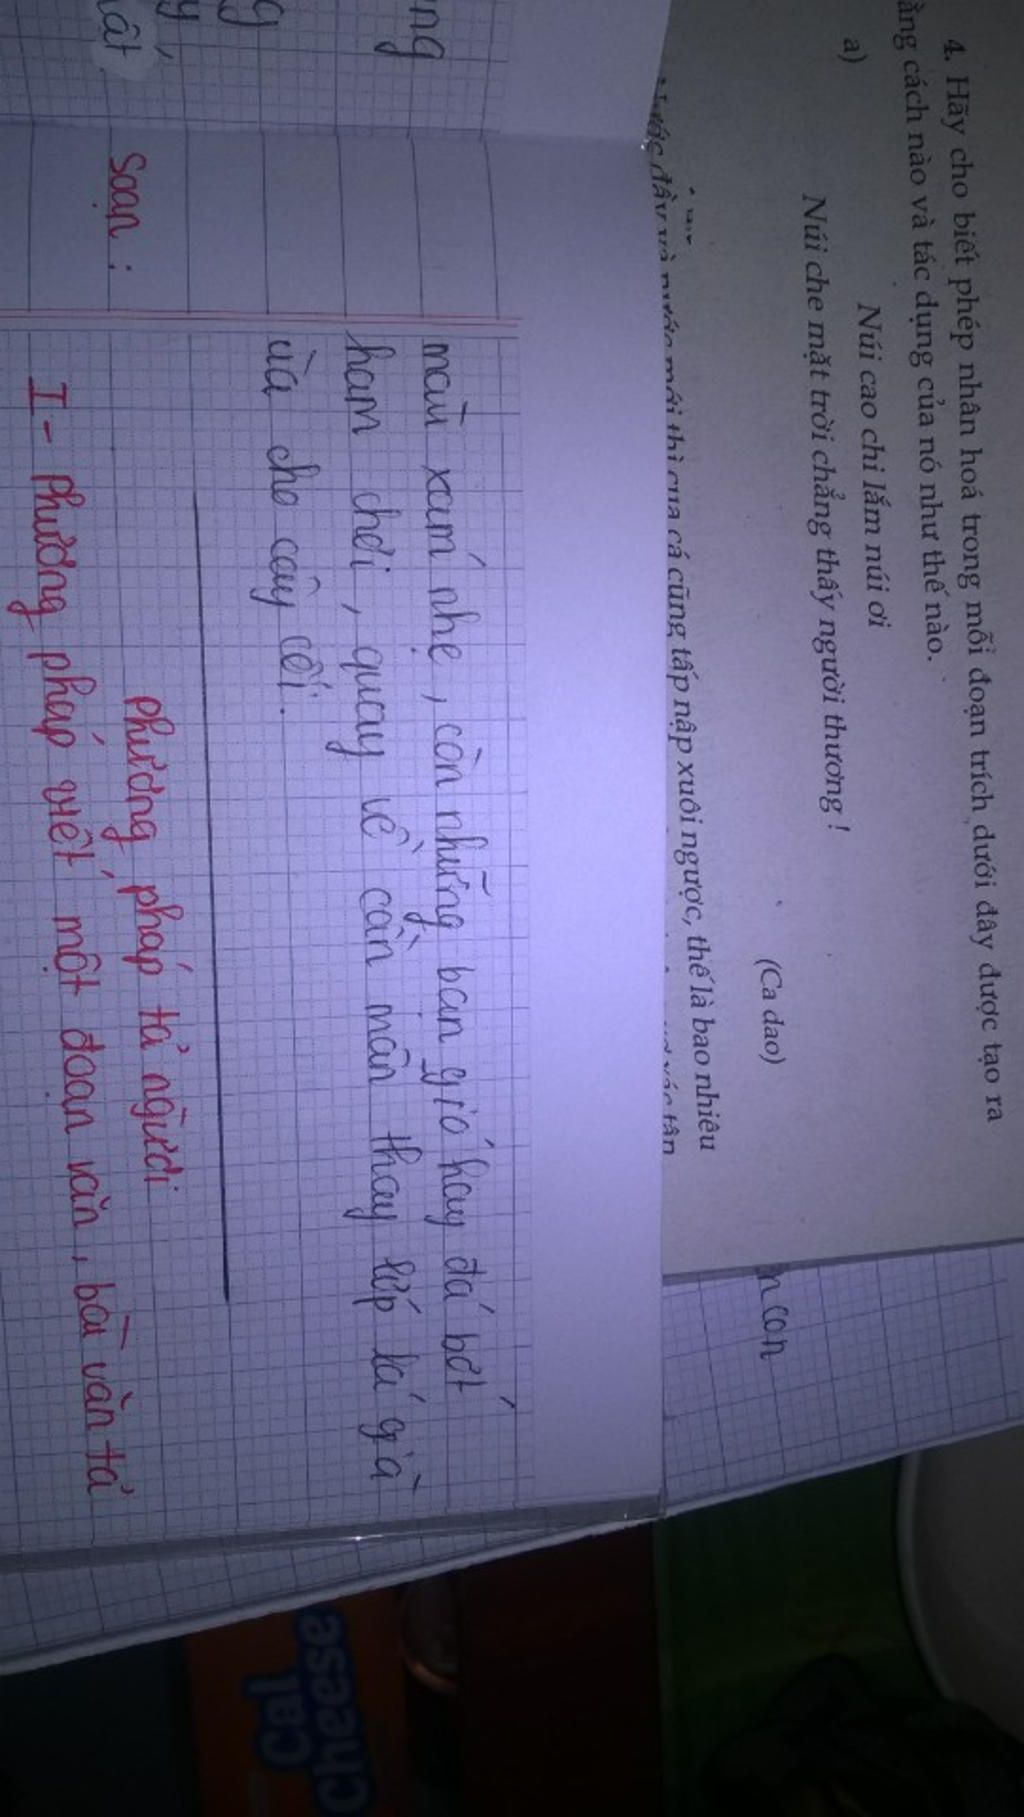 4. Hãy cho biết phép nhân hoá trong mỗi đoạn trích dưới đây được tạo ra
ằng cách nào và tác dụng của nó như thế nào.
a)
Núi cao chi lắm núi ơi
Núi che mặt trời chẳng thấy người thương !
(Ca dao)
nước mới thì cua cá cũng tấp nập xuôi ngược, thế là bao nhiêu
n con
ng
màu xám nhẹ, còn những bạn gió hay đá bát
ham chơi, quay về cần mẫn thay lớp lá già
ùa cho cây cối.
Soạn :
phương pháp tả người
I - Phương pháp viết một đoạn văn, bài văn tả
Cal
Cheese